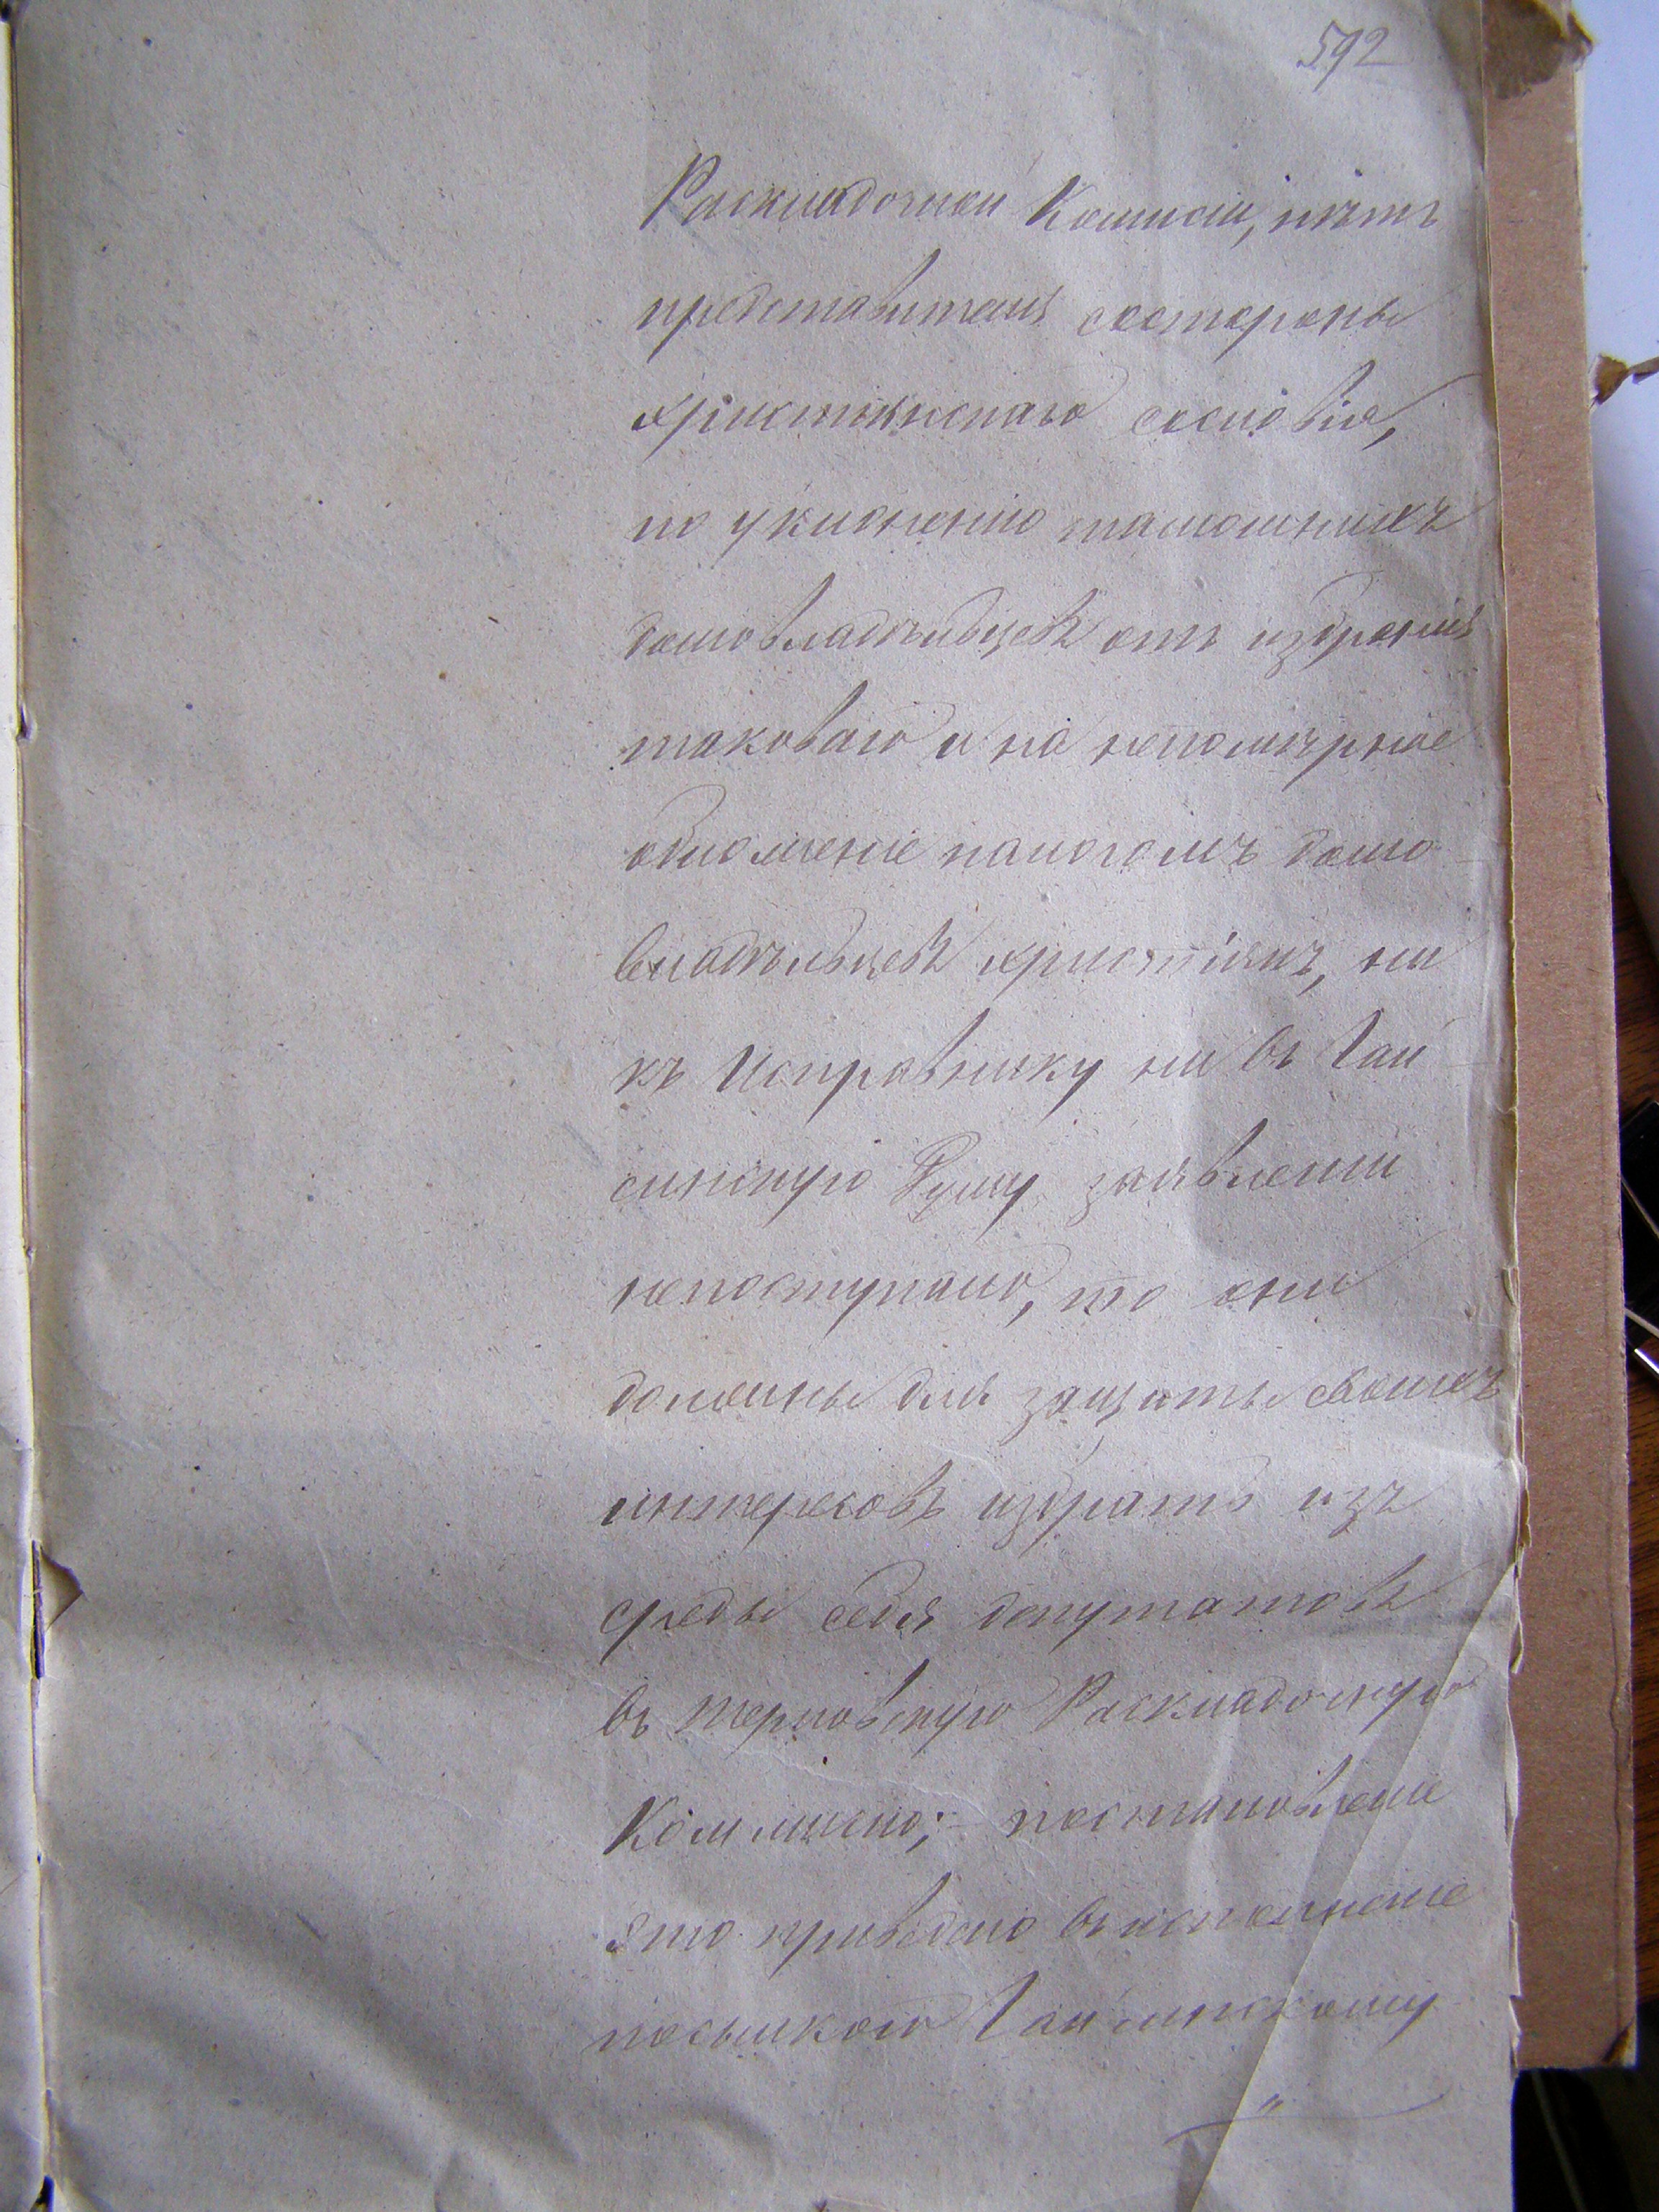 592
Раскладочной Комисіи, нѣтъ
представителя состороны
христіянскаго сословія,
по уклоненію тамошнихъ
домовладѣльцевъ отъ избранія
таковаго и на непомѣрное
обложеніе налогомъ домо
владѣльцевъ христіянъ, ни
къ Исправнику ни въ Гай
синскую Думу заявленій
непоступало, то они
должны для защиты своихъ
интересовъ избрать изъ
среды себя депутатовъ
въ Терновскую Раскладочную
Коммисію; постановленіе
это приведено въ исполненіе
посылкою Гайсинскому